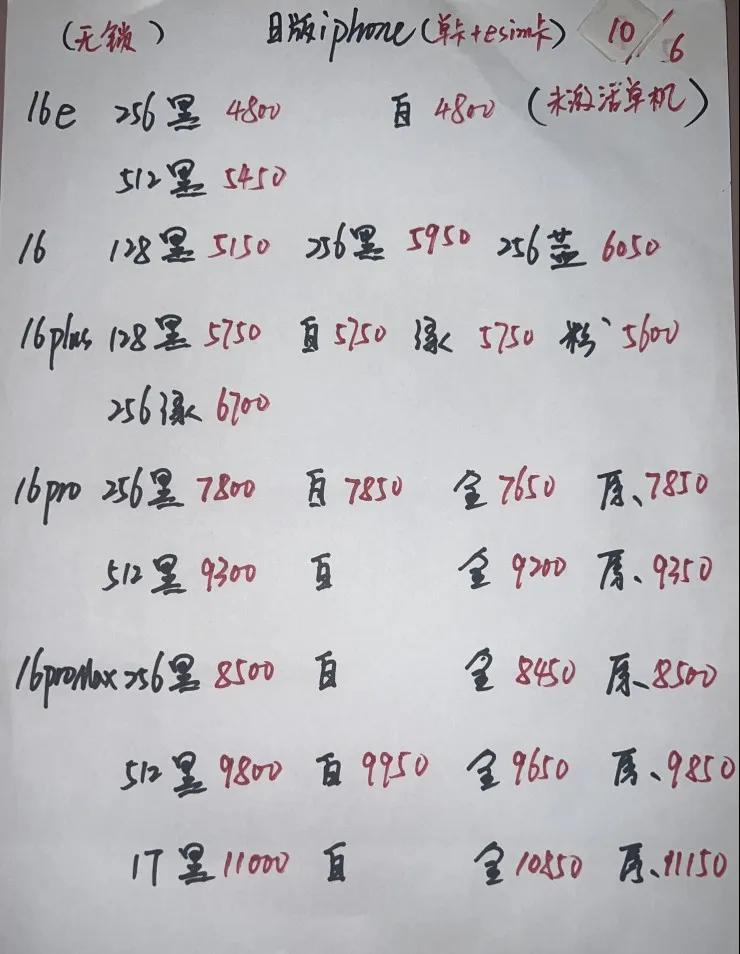 (无锁) 日版iphone(单卡+esim卡) 10/6
16e 256黑 4800 白 4800 (未激活单机)
512黑 5450
16 128黑 5150 256黑 5950 256蓝 6050
16plus 128黑 5750 白 5750 绿 5750 粉 5600
256绿 6700
16pro 256黑 7800 白 7850 金 7650 原、7850
512黑 9300 白 金 9200 原、9350
16proMax 256黑 8500 白 金 8450 原、8500
512黑 9800 白 9950 金 9650 原、9850
1T黑 11000 白 金 10850 原、11150